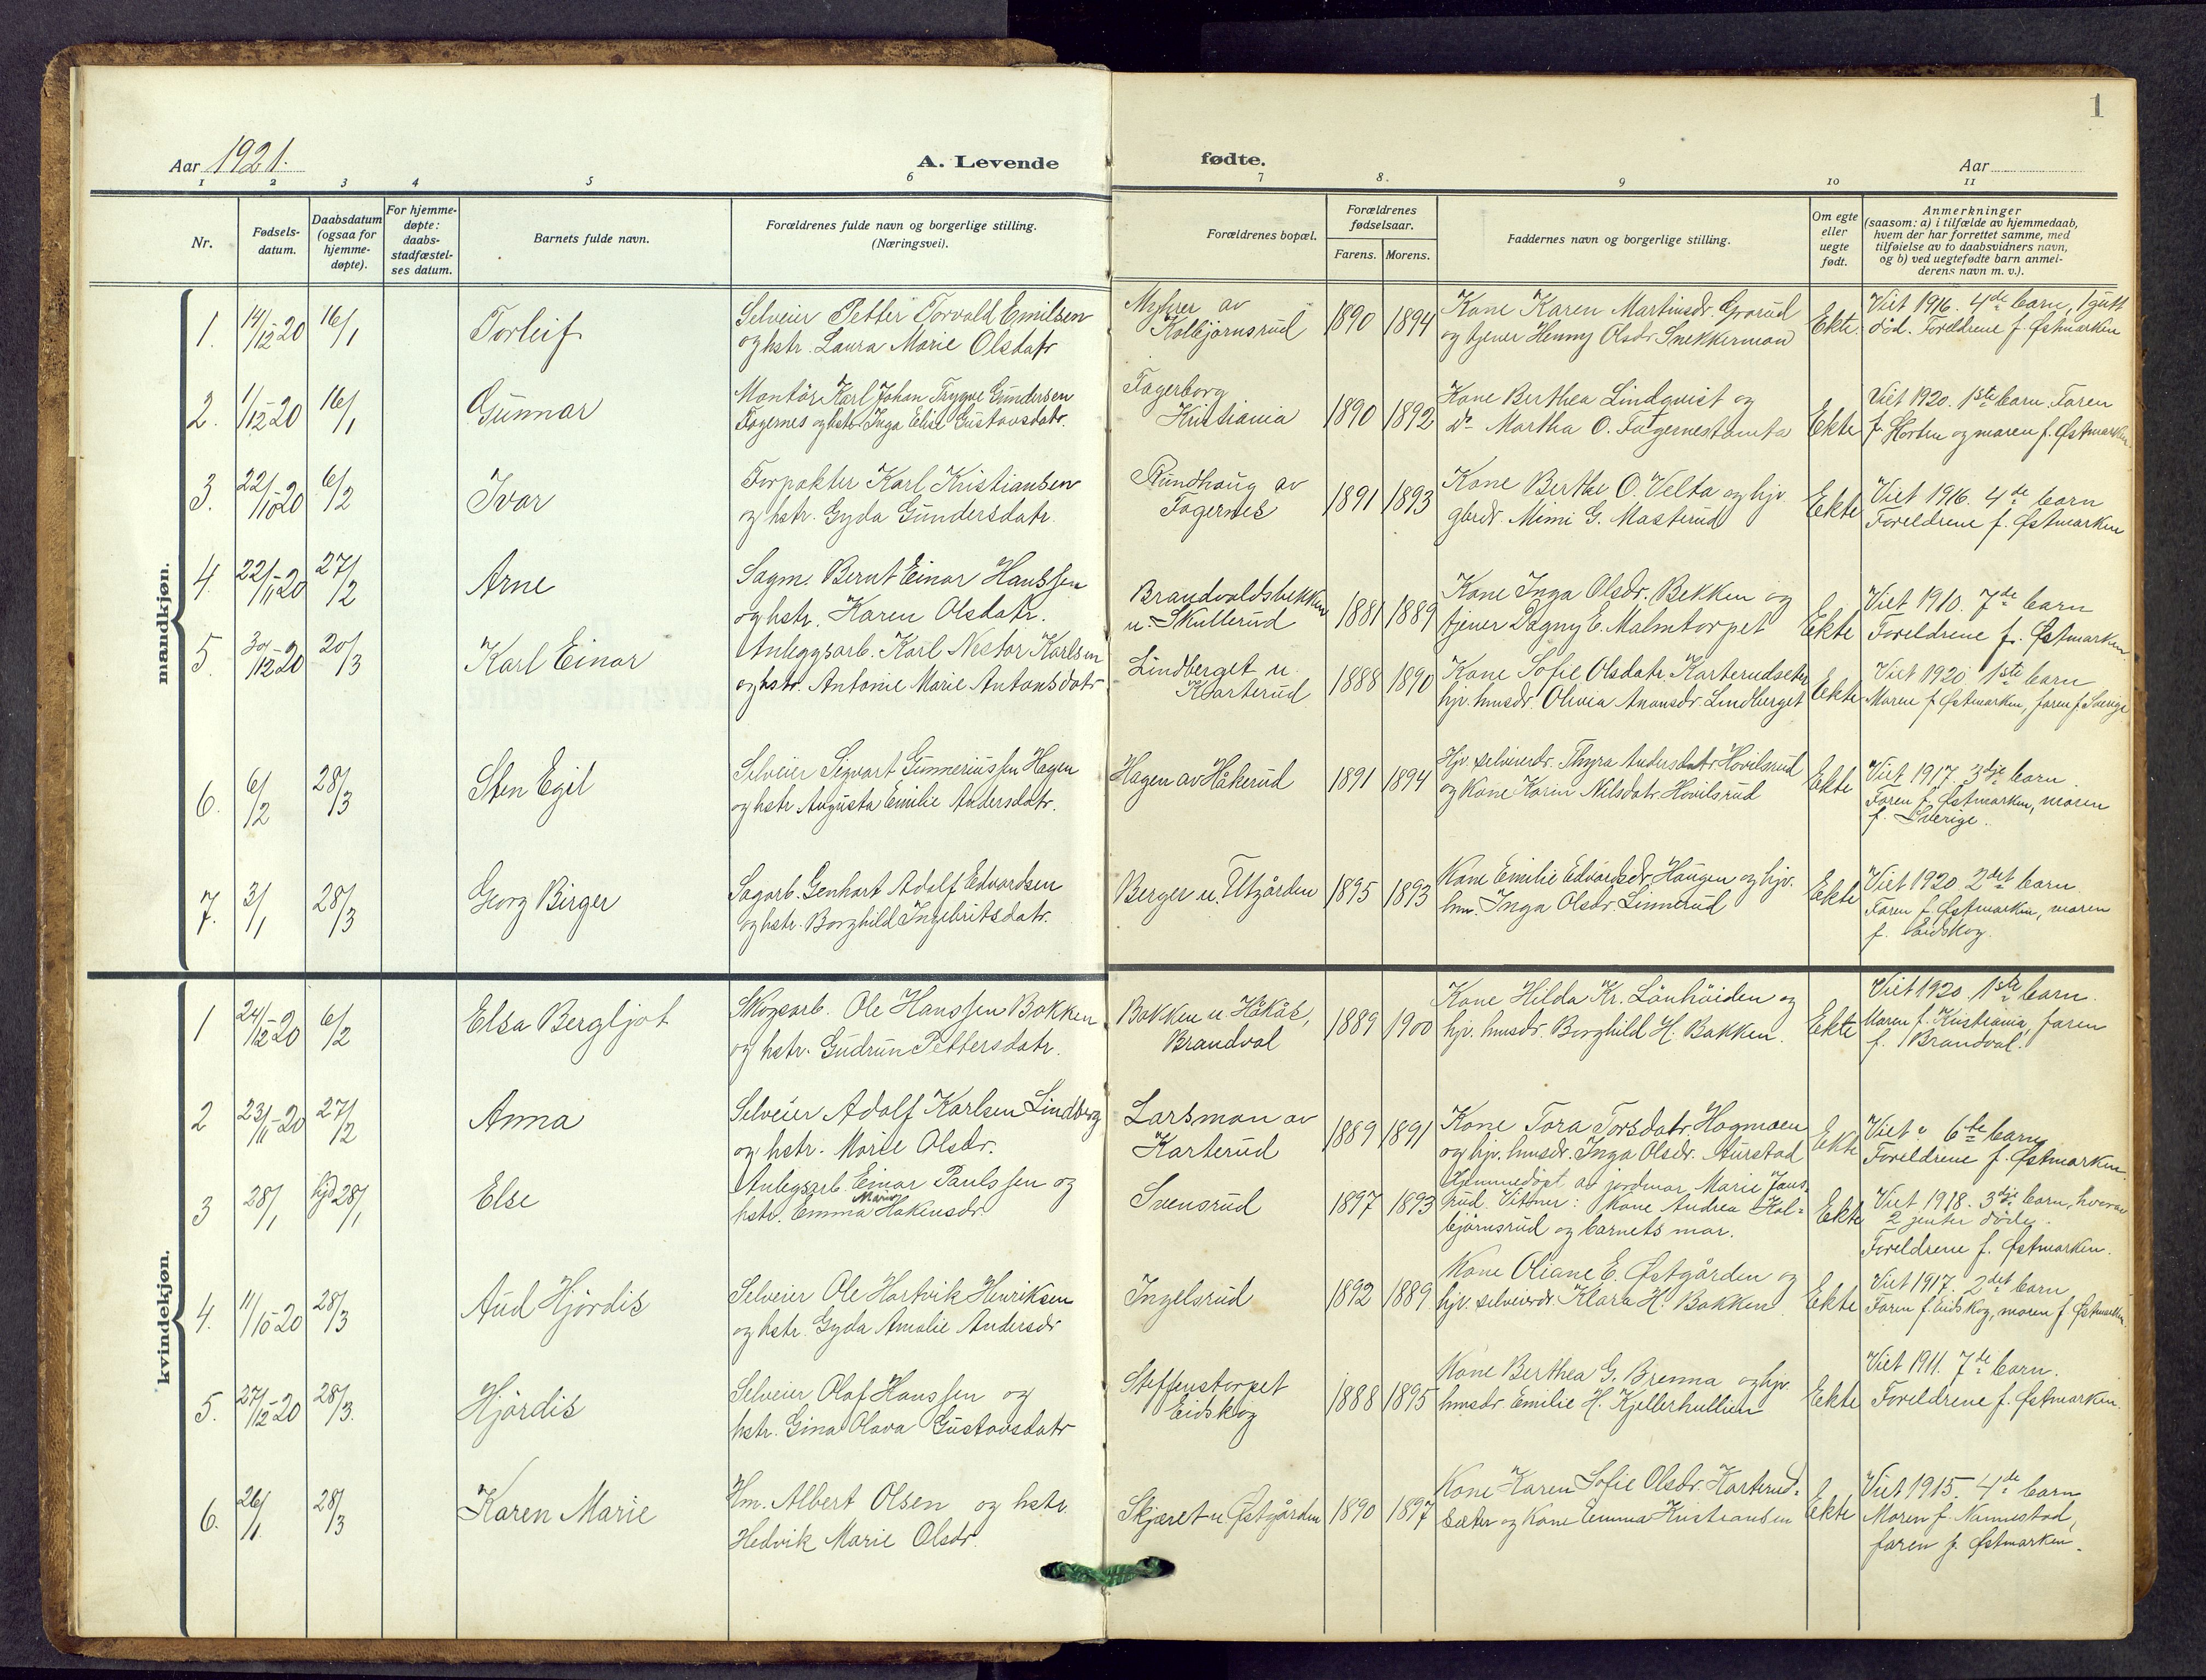 1
Aar 1921.
A. Levende fødte.
Aar
1 2 3 4 5 6 7 8. 9 10 11
Nr.
Fødsels-
datum.
Daabsdatum
(ogsaa for
hjemme-
døpte).
For hjemme-
døpte:
daabs-
stadfæstel-
ses datum.
Barnets fulde navn.
Forældrenes fulde navn og borgerlige stilling.
(Næringsvei).
Forældrenes bopæl.
Forældrenes
fødselsaar.
Farens. Morens.
Faddernes navn og borgerlige stilling.
Om egte
eller
uegte
født.
Anmerkninger
(saasom: a) i tilfælde av hjemmedaab,
hvem der har forrettet samme, med
tilføielse av to daabsvidners navn,
og b) ved uegtefødte barn anmel-
derens navn m. v.).
mandkjøn.
1. 14/12-20 16/1 Torleif
Selveier Petter Torvald Emilsen
og hstr. Laura Marie Olsdatr
Myhrer av
Kolbjørnsrud
1890 1894
Kone Karen Martinsdr. Grorud
og tjener Henny Olsdr. Snekkermoen
Ekte.
Viet 1916. 4de barn, 1 gutt
død. Foreldrene f. Østmarken
2. 1/12-20 16/1 Gunnar
Montør Karl Johan Trygve Gundersen
Fagernes og hstr Inga Elise Gustavsdatr.
Fagerborg
Kristiania
1890 1892
Kone Berthea Lindqvist og
do Martha O. Fagernestomta
Ekte
Viet 1920. 1ste barn. Faren
f. Horten og moren f. Østmarken.
3. 22/10-20 6/2 Ivar
Forpakter Karl Kristiansen
og hstr. Gyda Gundersdatr.
Rundhaug av
Fagernes
1891 1893
Kone Berthe O. Velta og hjv.
gbrdr. Mimi G. Masterud
Ekte
Viet 1916. 4de barn
Foreldrene f. Østmarken
4. 22/11-20 27/2 Arne
Sagm. Bernt Einar Hanssen
og hstr. Karen Olsdatr.
Brandvoldsbekken
u. Skullerud
1881 1889
Kone Inga Olsdr. Bekken og
tjener Dagny E. Malmtorpet
Ekte
Viet 1910. 7de barn
Foreldrene f. Østmarken.
5. 30/12-20 20/3 Karl Einar
Anleggsarb. Karl Nestor Karlsen
og hstr. Antonie Marie Antonsdatr
Lindberget u.
Karterud
1888 1890
Kone Sofie Olsdatr. Karterudseter
hjv. hmsdr. Olivia Lindberget
Ekte
Viet 1920 1ste barn
Moren f Østmarken, faren f. Sverige
6. 6/2 28/3 Sten Egil
Selveier Sigvart Gunneriussen Hagen
og hstr Augusta Emilie Andersdatr.
Hagen av Håkerud
1891 1894
Hjv. selveierdr. Thyra Andersdatr Hovilsrud
og Kone Karin Nilsdatr Hovilsrud
Ekte
Viet 1917. 3dje barn
Faren f. Østmarken, moren
f. Sverige.
7. 3/1 28/3 Georg Birger
Sagarb. Genhart Adolf Edvardsen
og hstr. Borghild Ingebritsdatr.
Berger u. Utgården
1895 1893
Kone Emilie Edvardsdr Haugen og hjv.
hm. Inga Olsdr. Linnerud
Ekte
Viet 1920 2det barn.
Faren f. Østmarken, moren
f. Eidskog.
kvindekjøn.
1 24/12-20 6/2 Elsa Bergljot
Skogsarb. Ole Hanssen Bakken
og hstr. Gudrun Pettersdatr.
Bakken u Håkås,
Brandval
1889 1900
Kone Hilda Kr. Lönhöiden og
hjv. hmsdr. Borghild H. Bakken.
Ekte
Viet 1920. 1ste barn.
Moren f. Kristiania, faren
f. Brandval.
2 23/11-20 27/2 Anna
Selveier Adolf Karlsen Lindberg
og hstr. Marie Olsdr.
Larsmon av
Karterud
1889 1891
Kone Tora Torsdatr. Hagmoen
og hjv. hmsdr. Inga Olsdr. Aurstad
Ekte
Viet " 6te barn
Foreldrene f. Østmarken.
3 28/1 hjd 28/1 Else
Anlegsarb. Einar Paulssen og
hstr. Emma Marie Håkensdr.
Svensrud
1897 1893
Hjemmedöpt av jordmor Marie Jans-
rud. Vitner: Kone Andrea Kol-
björnsrud og barnets mor.
Ekte
Viet 1918. 3dje barn, hvorav
2 jenter döde.
Foreldrene f. Østmarken.
4. 11/10-20 28/3 Aud Hjördis
Selveier Ole Hartvik Henriksen
og hstr. Gyda Amalie Andersdr
Ingelsrud
1892 1889
Kone Oliane E. Østgården og
hjv. selveierdr. Klara H. Bakken
Ekte
Viet 1917. 2det barn
Faren f. Eidskog, moren f. Østmarken.
5. 27/12-20 28/3. Hjördis
Selveier Olaf Hanssen og
hstr. Gina Olava Gustavsdatr
Steffenstorpet
Eidskog
1888 1895
Kone Berthea G. Brenna og hjv.
hmsdr. Emilie H. Kjellerhullien
Ekte
Viet 1911. 7de barn.
Foreldrene f. Østmarken.
6. 26/1 28/3 Karen Marie
Hm. Albert Olsen og hstr.
Hedvik Marie Olsdr.
Skjæret u. Østgården
1890 1897
Kone Karen Sofie Olsdr. Karterud-
sæter og Kone Emma Kristiansen
Ekte
Viet 1915. 4de barn
Moren f. Nannestad,
faren f. Østmarken.